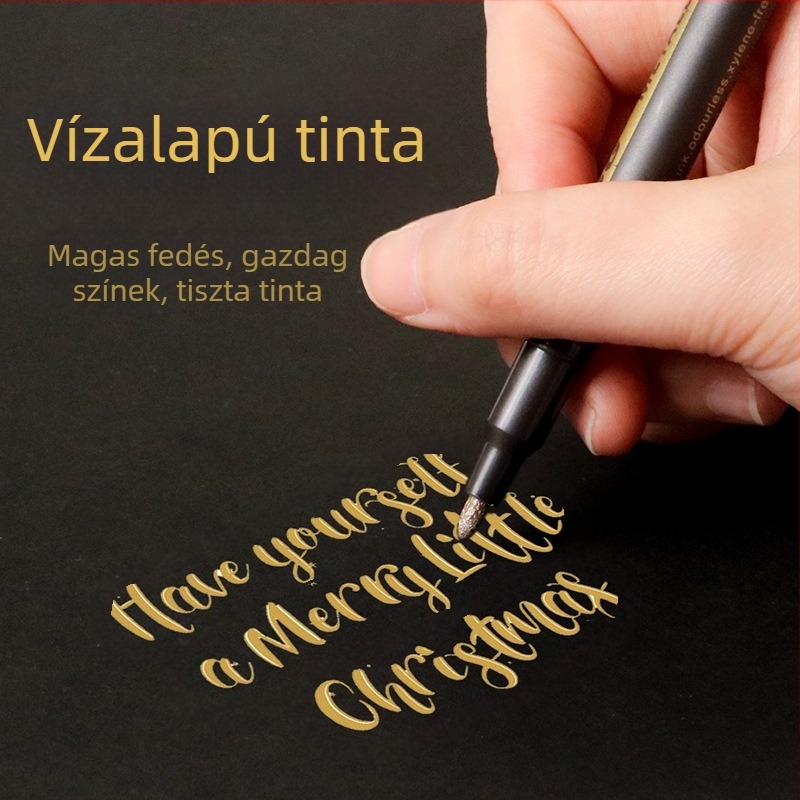 Vízalapú tinta
Magas fedés, gazdag
színek, tiszta tinta
ink.odourless.xylene-fre
Have yourself
a Merry Little
Christmas